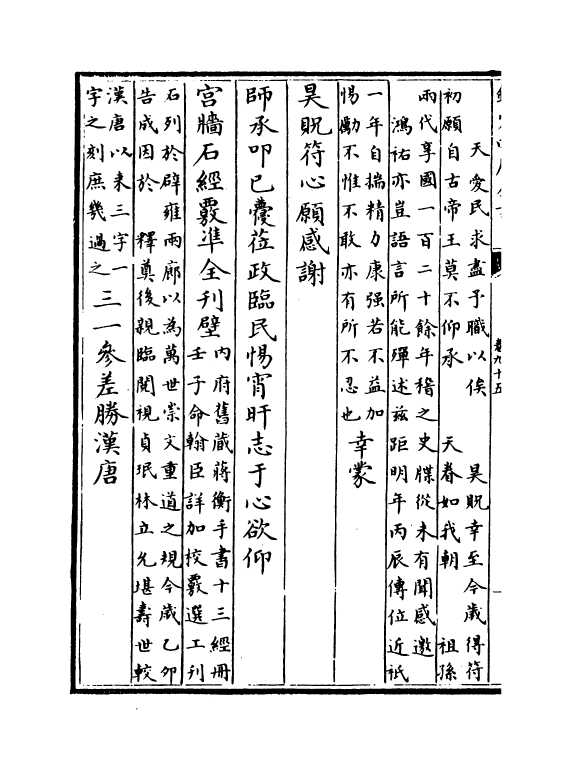 卷九十五
天愛民求盡予職以俟　昊貺幸至今歲得符
初願自古帝王莫不仰承　天眷如我朝　祖孫
兩代享國一百二十餘年稽之史牒從未有聞感邀
鴻祐亦豈語言所能殫述兹距明年丙辰傳位近祇
一年自揣精力康强若不益加
惕勵不惟不敢亦有所不忍也
幸蒙
昊貺符心願感謝
師承叩已虁莅政臨民惕宵旰志于心欲仰
宫牆石經覈準全刊壁
内府舊蔵蔣衡手書十三經冊
壬子命翰臣詳加校覈選工刊
石列於辟雍兩廊以為萬世崇文重道之規今歲乙夘
告成因於　釋奠後親臨閲視貞珉林立允堪壽世較
漢唐以来三字一
字之刻庶幾過之
三一參差勝漢唐